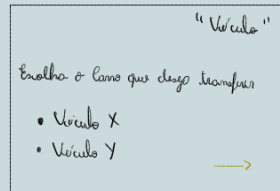 "Veículo"
Escolha o carro que desejo transferir
• Veículo X
• Veículo Y